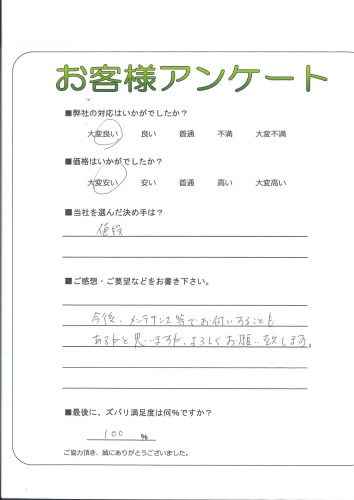 お客様アンケート
■弊社の対応はいかがでしたか？
大変良い 良い 普通 不満 大変不満
■価格はいかがでしたか？
大変安い 安い 普通 高い 大変高い
■当社を選んだ決め手は？
値段
■ご感想・ご要望などをお書き下さい。
今後、メンテナンス等でお付いすることも
あるかと思いますが、よろしくお願い致します。
■最後に、ズバリ満足度は何%ですか？
100 %
ご協力頂き、誠にありがとうございました。